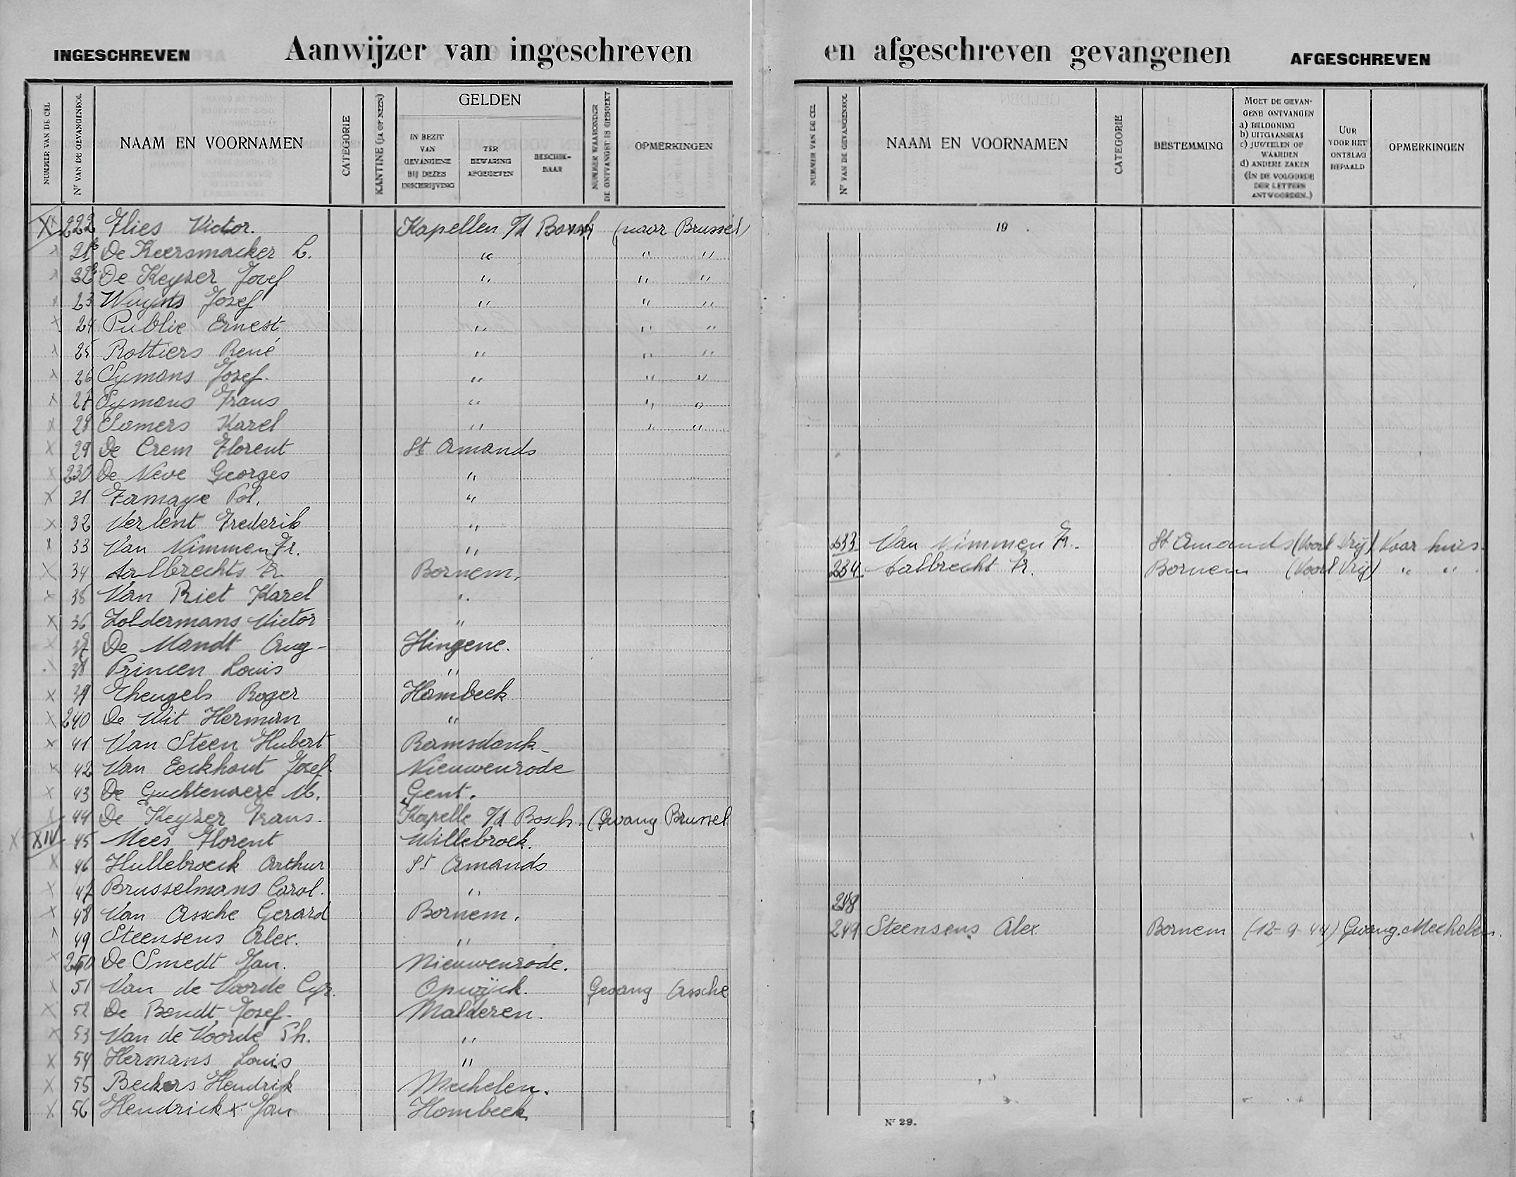 INGESCHREVEN Aanwijzer van ingeschreven en afgeschreven gevangenen AFGESCHREVEN
NUMMER VAN DE CEL
Nr VAN DE GEVANGENROL
NAAM EN VOORNAMEN
CATEGORIE
KANTINE (JA OF NEEN)
GELDEN
IN BEZIT VAN GEVANGENE BIJ DEZES INSCHRIJVING
TER BEWARING AFGEGEVEN
BESCHIK-BAAR
NUMMER WAARONDER DE ONTVANGST IS GEBOEKT
OPMERKINGEN
X 222 Flies Victor. Kapellen o/d Bosch (naar Brussel)
x De Keersmaeker L. " " "
x De Keyser Josef " " "
x 23 Wuyts Josef " " "
x 24 Publie Ernest " " "
x 25 Rottiers René " " "
x 26 Symons Josef. " " "
x 27 Symons Frans " " "
x 28 Somers Karel " " "
x 29 De Crem Florent St Amands
x 230 De Neve Georges "
x 31 Fermaye Pol. "
x 32 Verlent Frederik "
x 33 Van Nimmen Fr. "
x 34 Aalbrechts Fr. Bornem.
x 35 Van Riet Karel "
x 36 Zoldermans Victor "
x 37 De Mandt Aug- Hingene.
x 38 Princen Louis "
x 39 Roger Hombeek
x 240 De Wit Herman "
x 41 Van Steen Hubert Ramsdonk-
x 42 Van Eeckhout Josef- Nieuwenrode
x 43 De Guchtenaere M. Gent.
x 44 De Keyser Frans. Kapelle o/d Bosch. (Gevang Brussel
x XIV 45 Mees Florent Willebroek.
x 46 Hullebroeck Arthur St Amands
x 47 Brusselmans Carol. "
x 48 Van Assche Gerard Bornem.
x 49 Steensens Alex. "
x 250 De Smedt Jan. Nieuwenrode.
x 51 Van de Voorde Cyr. Opwijck. Gevang Assche
x 52 De Bondt Josef- Malderen.
x 53 Van de Voorde Ph. "
x 54 Hermans Louis "
x 55 Beckers Hendrik Mechelen.
x 56 Hendrickx Jan Hombeek
NUMMER VAN DE CEL
Nr VAN DE GEVANGENROL
NAAM EN VOORNAMEN
CATEGORIE
BESTEMMING
MOET DE GEVAN-
GENE ONTVANGEN
a) BELOONING
b) UITGAANSKAS
c) JUWEELEN OF
WAARDEN
d) ANDERE ZAKEN
(IN DE VOLGORDE
DER LETTERS
ANTWOORDEN.)
UUR
VOOR HET
ONTSLAG
BEPAALD
OPMERKINGEN
19
233 Van Nimmen Fr. St Amands (Voorl Vrij) Naar huis.
234 Aalbrecht Fr. Bornem (Voorl Vrij) " "
248
249 Steensens Alex Bornem (12-9-44) Gevang. Mechelen.
Nr 29.